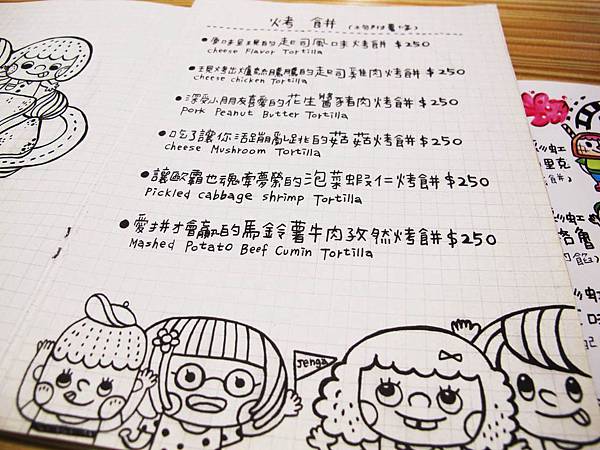 烤 餅
•原味呈現的起司風味烤餅 $250
cheese Flavor Tortilla
•王見烤出爐熱騰騰的起司雞肉烤餅 $250
cheese chicken Tortilla
•深受小朋友喜愛的花生醬豬肉烤餅 $250
pork Peanut Butter Tortilla
•吃了讓你活蹦亂跳的菇菇烤餅 $250
cheese Mushroom Tortilla
•讓歐霸也魂牽夢縈的泡菜蝦仁烤餅 $250
Pickled cabbage shrimp Tortilla
•愛拼才會贏的馬鈴薯牛肉孜然烤餅 $250
Mashed Potato Beef Cumin Tortilla
Jenga
彩虹
里克
餅)
彩虹
洛魯